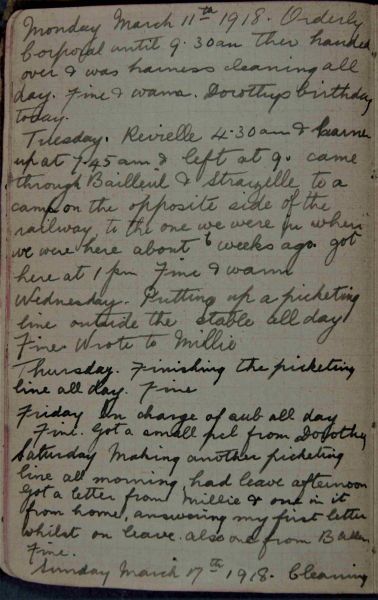 Monday March 11th 1918. Orderly
Corporal until 9.30am then handed
over & was harness cleaning all
day. Fine & warm. Dorothys birthday
today.
Tuesday. Revielle 4.30am &
up at 7.45am & left at 9. came
through Bailleul & Strazeele to a
camp on the opposite side of the
railway to the one we were in when
we were here about 6 weeks ago. got
here at 1pm Fine & warm
Wednesday. Putting up a picketing
line outside the stable all day
Fine. Wrote to Millie
Thursday. Finishing the picketing
line all day. Fine
Friday In charge of sub all day
Fine. Got a small pcl from Dorothy
Saturday Making another picketing
line all morning, had leave afternoon
Got a letter from Millie & one in it
from home, answering my first letter
whilst on leave. also one from
Fine.
Sunday March 17th 1918. Cleaning